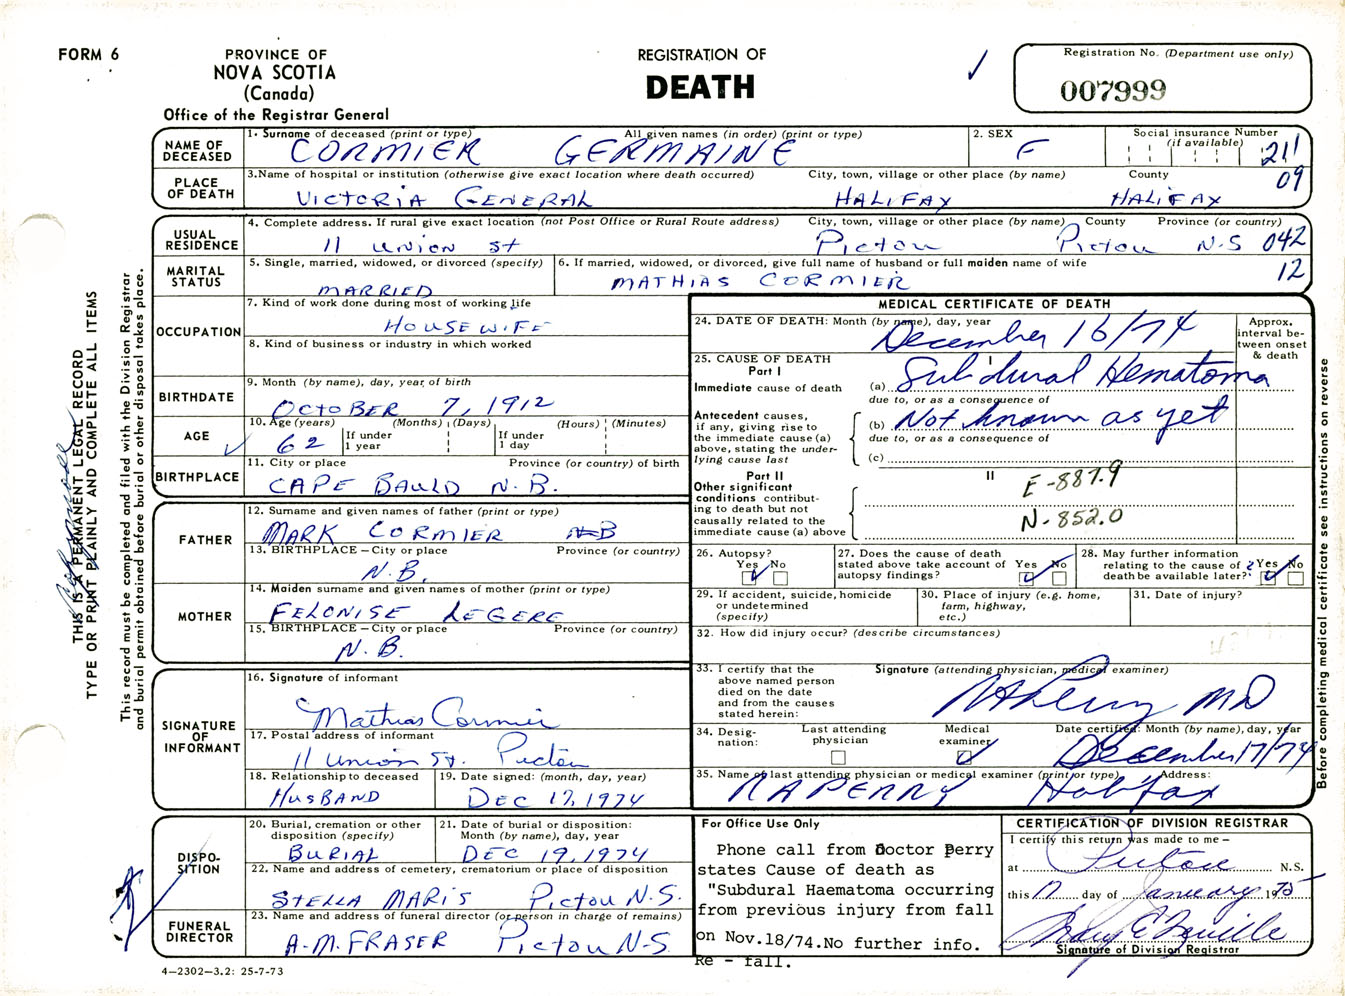 FORM 6
PROVINCE OF
NOVA SCOTIA
(Canada)
Office of the Registrar General
REGISTRATION OF
DEATH
Registration No. (Department use only)
007999
NAME OF DECEASED
1. Surname of deceased (print or type) All given names (in order) (print or type)
CORMIER GERMAINE
2. SEX
F
Social insurance Number
(if available)
211
09
PLACE OF DEATH
3.Name of hospital or institution (otherwise give exact location where death occurred) City, town, village or other place (by name) County
VICTORIA GENERAL HALIFAX HALIFAX
USUAL RESIDENCE
4. Complete address. If rural give exact location (not Post Office or Rural Route address) City, town, village or other place (by name) County Province (or country)
11 UNION St PICTOU PICTOU N.S 042
MARITAL STATUS
5. Single, married, widowed, or divorced (specify)
MARRIED
6. If married, widowed, or divorced, give full name of husband or full maiden name of wife
MATHIAS CORMIER
12
OCCUPATION
7. Kind of work done during most of working life
HOUSEWIFE
8. Kind of business or industry in which worked
BIRTHDATE
9. Month (by name), day, year of birth
OCTOBER 7, 1912
AGE
10. Age (years) (Months) (Days) (Hours) (Minutes)
62 If under 1 year If under 1 day
BIRTHPLACE
11. City or place Province (or country) of birth
CAPE BAULD N.B.
FATHER
12. Surname and given names of father (print or type)
MARK CORMIER NB
13. BIRTHPLACE – City or place Province (or country)
N.B.
MOTHER
14. Maiden surname and given names of mother (print or type)
FELONISE LEGERE
15. BIRTHPLACE – City or place Province (or country)
N.B.
SIGNATURE OF INFORMANT
16. Signature of informant
Mathias Cormier
17. Postal address of informant
11 Union St. Pictou
18. Relationship to deceased
HUSBAND
19. Date signed: (month, day, year)
DEC 17, 1974
DISPO-
SITION
20. Burial, cremation or other disposition (specify)
BURIAL
21. Date of burial or disposition:
Month (by name), day, year
DEC 19, 1974
22. Name and address of cemetery, crematorium or place of disposition
STELLA MARIS PICTOU N.S.
FUNERAL DIRECTOR
23. Name and address of funeral director (or person in charge of remains)
A.M. FRASER PICTOU N.S.
MEDICAL CERTIFICATE OF DEATH
24. DATE OF DEATH: Month (by name), day, year
December 16/74
Approx. interval be-
tween onset & death
25. CAUSE OF DEATH
Part I
I
Immediate cause of death (a) Subdural Hematoma
due to, or as a consequence of
Antecedent causes, if any, giving rise to the immediate cause (a) above, stating the under-
lying cause last
(b) Not known as yet
due to, or as a consequence of
(c)
Part II
II
Other significant conditions contribut-
ing to death but not causally related to the immediate cause (a) above
E-887.9
N-852.0
26. Autopsy?
Yes No
27. Does the cause of death stated above take account of autopsy findings?
Yes No
28. May further information relating to the cause of death be available later?
Yes No
29. If accident, suicide, homicide or undetermined (specify)
30. Place of injury (e.g. home, farm, highway, etc.)
31. Date of injury?
32. How did injury occur? (describe circumstances)
33. I certify that the above named person died on the date and from the causes stated herein:
Signature (attending physician, medical examiner)
RAPerry MD
34. Desig-
nation:
Last attending physician
Medical examiner
Date certified: Month (by name), day, year
December 17/74
35. Name of last attending physician or medical examiner (print or type) Address:
RAPERRY Halifax
For Office Use Only
Phone call from Doctor Perry
states Cause of death as
"Subdural Haematoma occurring
from previous injury from fall
on Nov.18/74.No further info.
Re - fall.
CERTIFICATION OF DIVISION REGISTRAR
I certify this return was made to me –
at Pictou N.S.
this 17 day of January 1975
Signature of Division Registrar
THIS IS A PERMANENT LEGAL RECORD
TYPE OR PRINT PLAINLY AND COMPLETE ALL ITEMS
This record must be completed and filed with the Division Registrar
and burial permit obtained before burial or other disposal takes place.
Before completing medical certificate see instructions on reverse
4–2302–3.2: 25-7-73